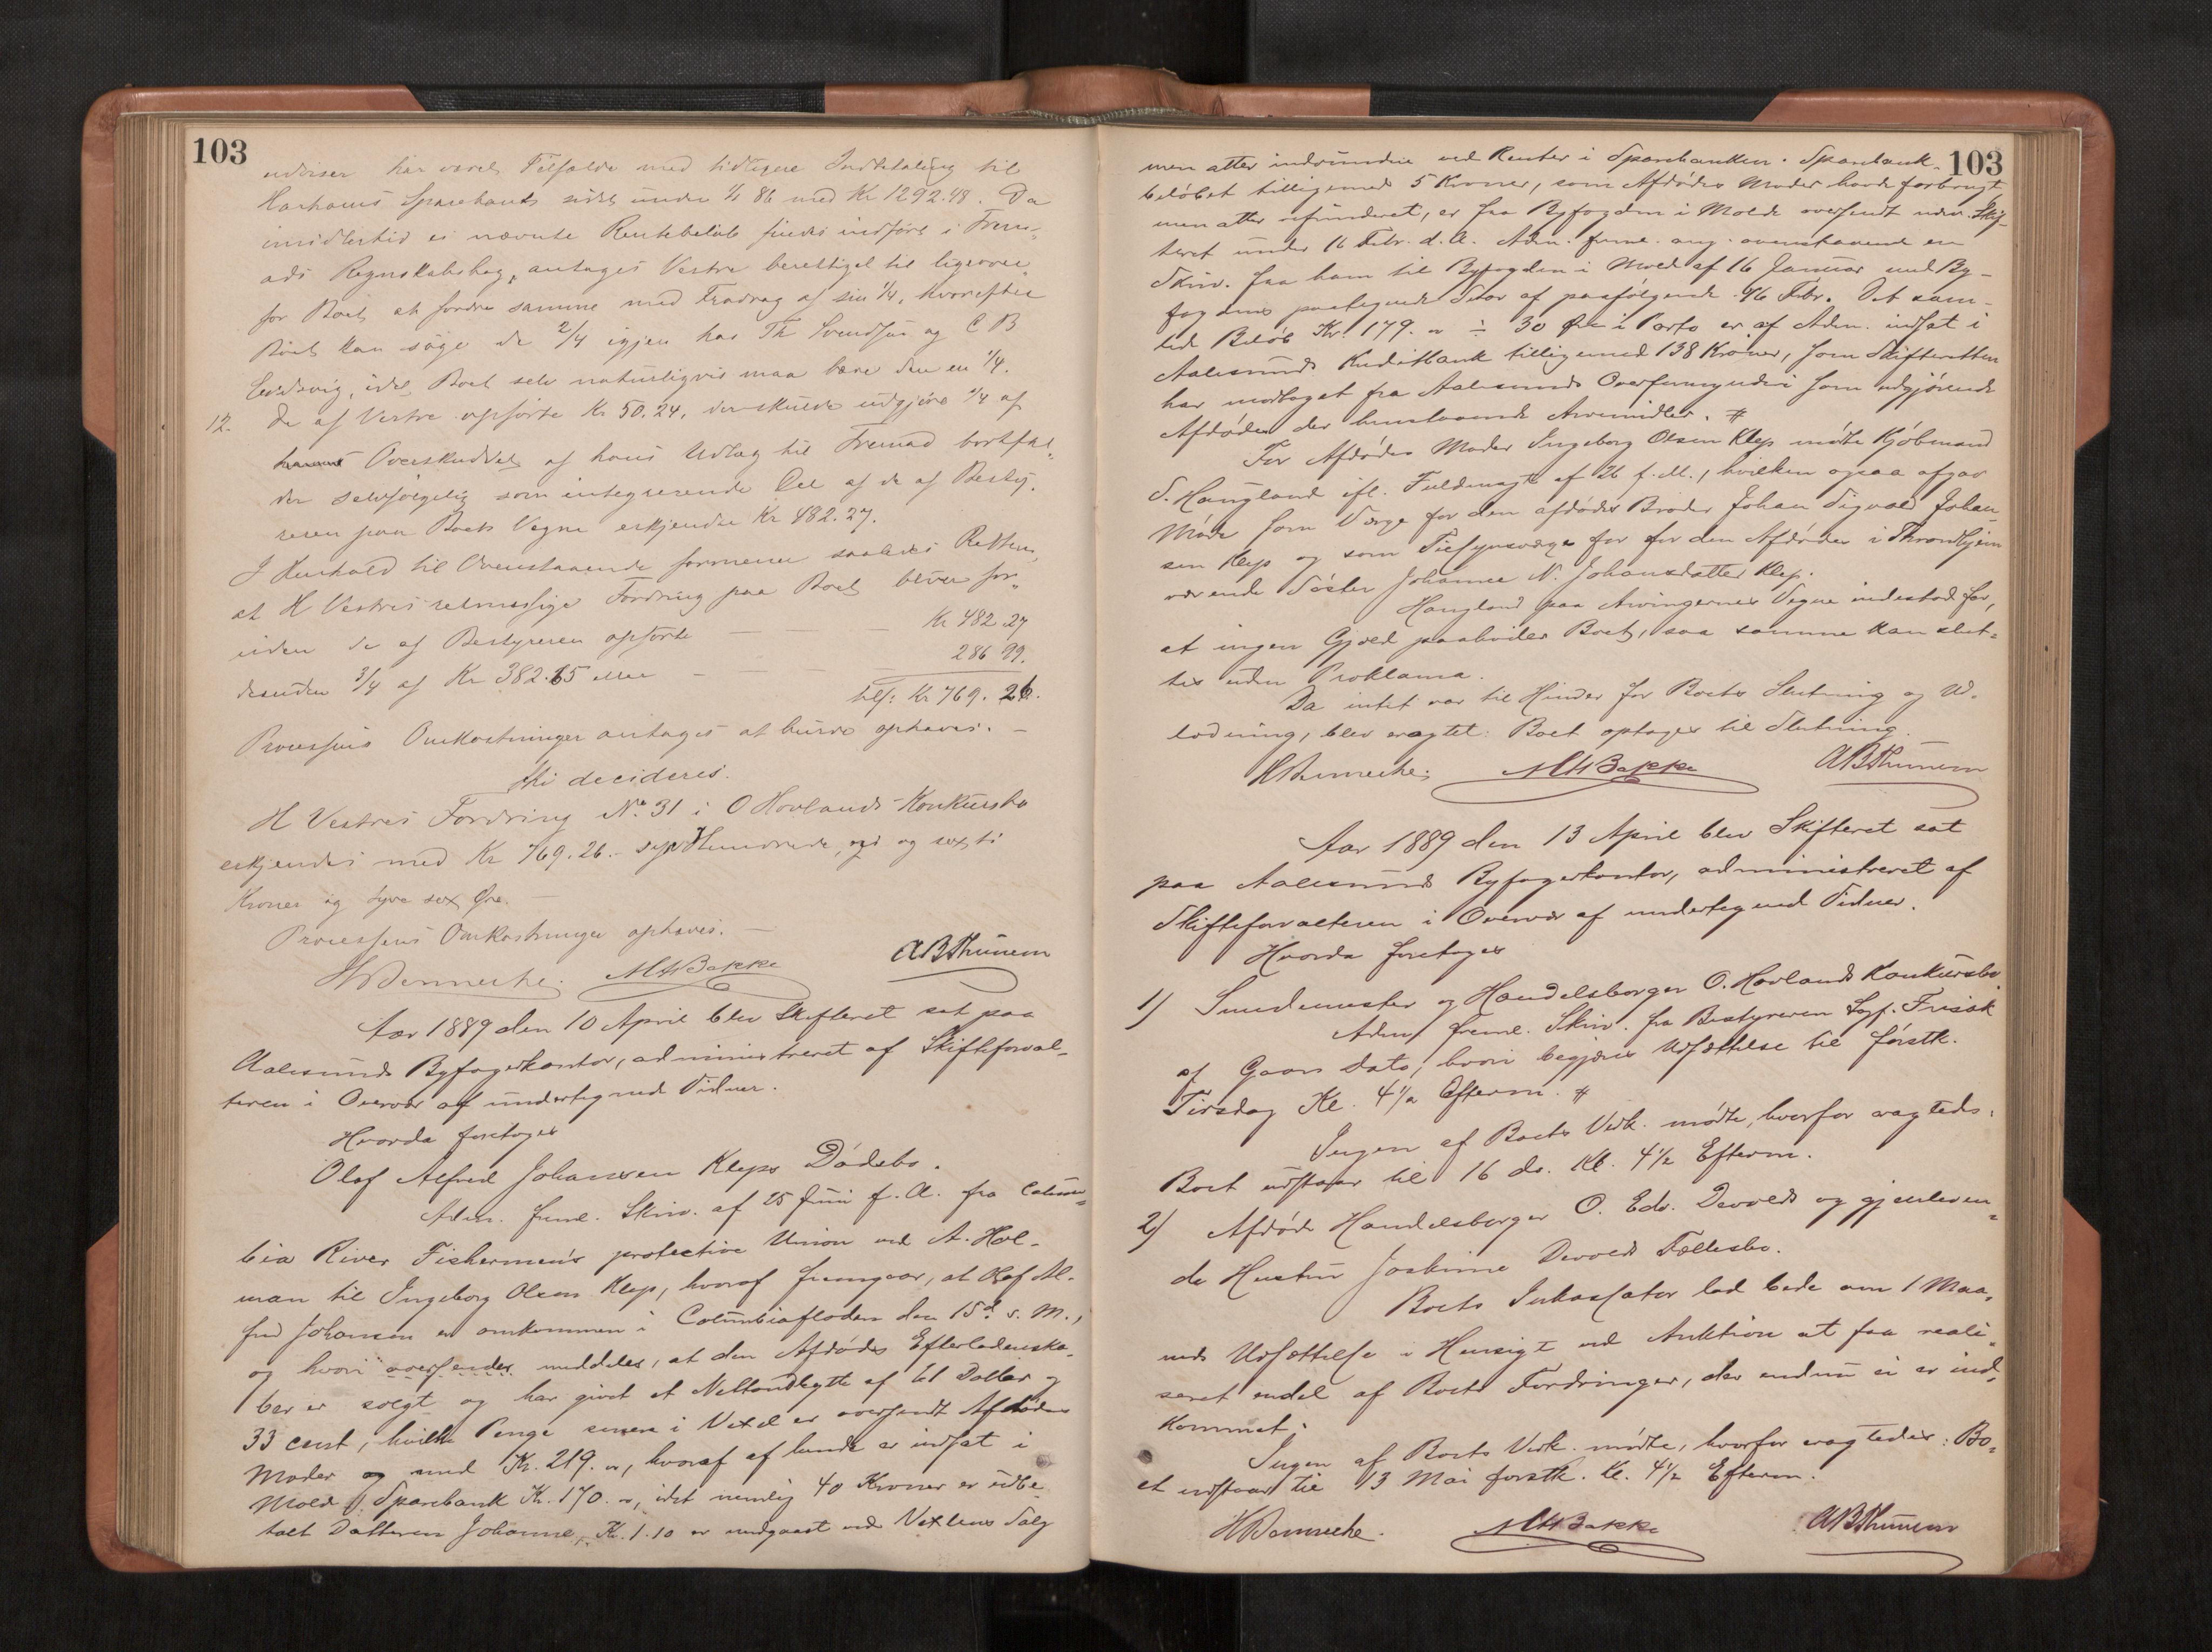 103
udviser har været Tilfælde med tidligere Indbetaling til
Harhams Sparebank sidst under 1/4 86 med Kr 1292.48. Da
imidlertid ei nævnte Rentebeløb findes indført i Frem-
ads Regnskabsbog, antages Vestre berettiget til ligeover-
for Boet at fordre samme med Fradrag af sin 1/4, hvorefter
Boet kan søge de 2/4 igjen hos Th Svendsen og C B
Eidsvig, idet Boet selv naturligvis maa bære den en 1/4.
12. De af Vestre opførte Kr 50.24, der skulde udgjøre 1/4 af
Overskuddet af hans Udlæg til Fremad bortfal-
der selvfølgelig som integrerende Del af de af Besty-
reren paa Boets Vegne erkjendte Kr 482.27.
I Henhold til Ovenstaaende formener saaledes Retten,
at H Vestres retmæssige Fordring paa Boet bliver for-
uden de af Bestyreren opførte — — — Kr 482 27
desuden 3/4 af Kr 382.65 eller — — — 286 99.
tils: Kr 769. 26.
Processens Omkostninger antages at burde ophæves. —
Thi decideres.
H Vestres Fordring No. 31 i O Hovlands Konkursbo
erkjendes med Kr 769.26.- syv Hundrede, ni og sexti
Kroner og tyve sex Øre. —
Processens Omkostninger ophæves. —
HDennecke. MHBakke ABThunem
Aar 1889 den 10 April blev Skifteret sat paa
Aalesunds Byfogedkontor, administreret af Skifteforval-
teren i Overvær af undertegned Vidner.
Hvorda foretoges
Olaf Alfred Johansen Kleps Dødsbo.
Adm. freml. Skriv. af 25 Juni f. A. fra Colum-
bia River Fishermen's protective Union ved A. Hol-
man til Ingeborg Olsen Klep, hvoraf fremgaar, at Olaf Al-
fred Johansen er omkommen i Columbiafloden den 15d s. M.,
og hvori oversendes meddeles, at den Afdødes Efterladenska-
ber er solgt og har givet et Nettoudbytte af 61 Dollar og
33 cent, hvilke Penge senere i Vexel er oversendt Afdødes
Moder og med Kr. 219. „, hvoraf af hende er indsat i
Molde Sparebank Kr. 170. „, idet nemlig 40 Kroner er udbe-
talt Datteren Johanne, Kr. 1.10 er medgaaet ved Vexlens Salg
103
men atter indvundne ved Renter i Sparebanken. Sparebank-
beløbet tilligemed 5 Kroner, som Afdødes Moder havde forbrugt
men atter refunderet, er fra Byfogden i Molde oversendt nærv. Skif-
teret under 16 Febr. d. A. Adm. freml. ang. ovenstaaende en
Skriv. fra ham til Byfogden i Molde af 16 Januar med By-
fogdens paategnede Svar af paafølgende 16 Febr. Det sam-
lede Beløb Kr. 179. „ ÷ 30 Øre i Porto er af Adm. indsat i
Aalesunds Kreditbank tilligemed 138 Kroner, som Skifteretten
har modtaget fra Aalesunds Overformynderi som udgjørende
Afdødes der henstaaende Arvemidler. #
For Afdødes Moder Ingeborg Olsen Klep mødte Kjøbmand
S. Haugland ifl. Fuldmagt af 26 f. M., hvilken ogsaa afgav
Møde som Værge for den afdødes Broder Johan Sigvald Johan-
sen Klep og som Tilsynsværge for for den Afdødes i Throndhjem
værende Søster Johanne N. Johansdatter Klep.
Haugland paa Arvingernes Vegne indestod for,
at ingen Gjæld paahviler Boet, saa samme kan slut-
tes uden Proklama.
Da intet var til Hinder for Boets Slutning og Ud-
lodning, blev eragtet: Boet optages til Slutning.
HDennecke. MHBakke ABThunem
Aar 1889 den 13 April blev Skifteret sat
paa Aalesunds Byfogedkontor, administreret af
Skifteforvalteren i Overvær af undertegned Vidner.
Hvorda foretoges
1) Smedemester og Handelsborger O. Hovlands Konkursbo
Adm. freml. Skriv. fra Bestyreren Sagf. Frisak
af Gaars Dato, hvori begjæres Udsættelse til førstk.
Tirsdag Kl. 4 1/2 Efterm. #
Ingen af Boets Vedk. mødte, hvorfor eragtedes:
Boet udstaar til 16 ds. Kl. 4 1/2 Efterm.
2) Afdøde Handelsborger O. Edv. Devolds og gjenleven-
de Hustru Joakime Devolds Fællesbo.
Boets Inkassator lod bede om 1 Maa-
neds Udsættelse i Hensigt ved Auktion at faa reali-
seret endel af Boets Fordringer, der endnu ei er ind-
kommet.
Ingen af Boets Vedk. mødte, hvorfor eragtedes: Bo-
et udstaar til 13 Mai førstk. Kl. 4 1/2 Efterm.
HDennecke. MHBakke ABThunem